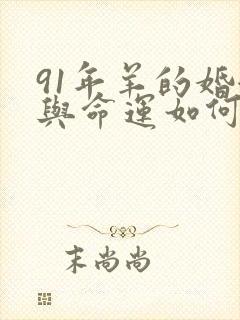 91年羊的婚
與命運如何
末尚尚